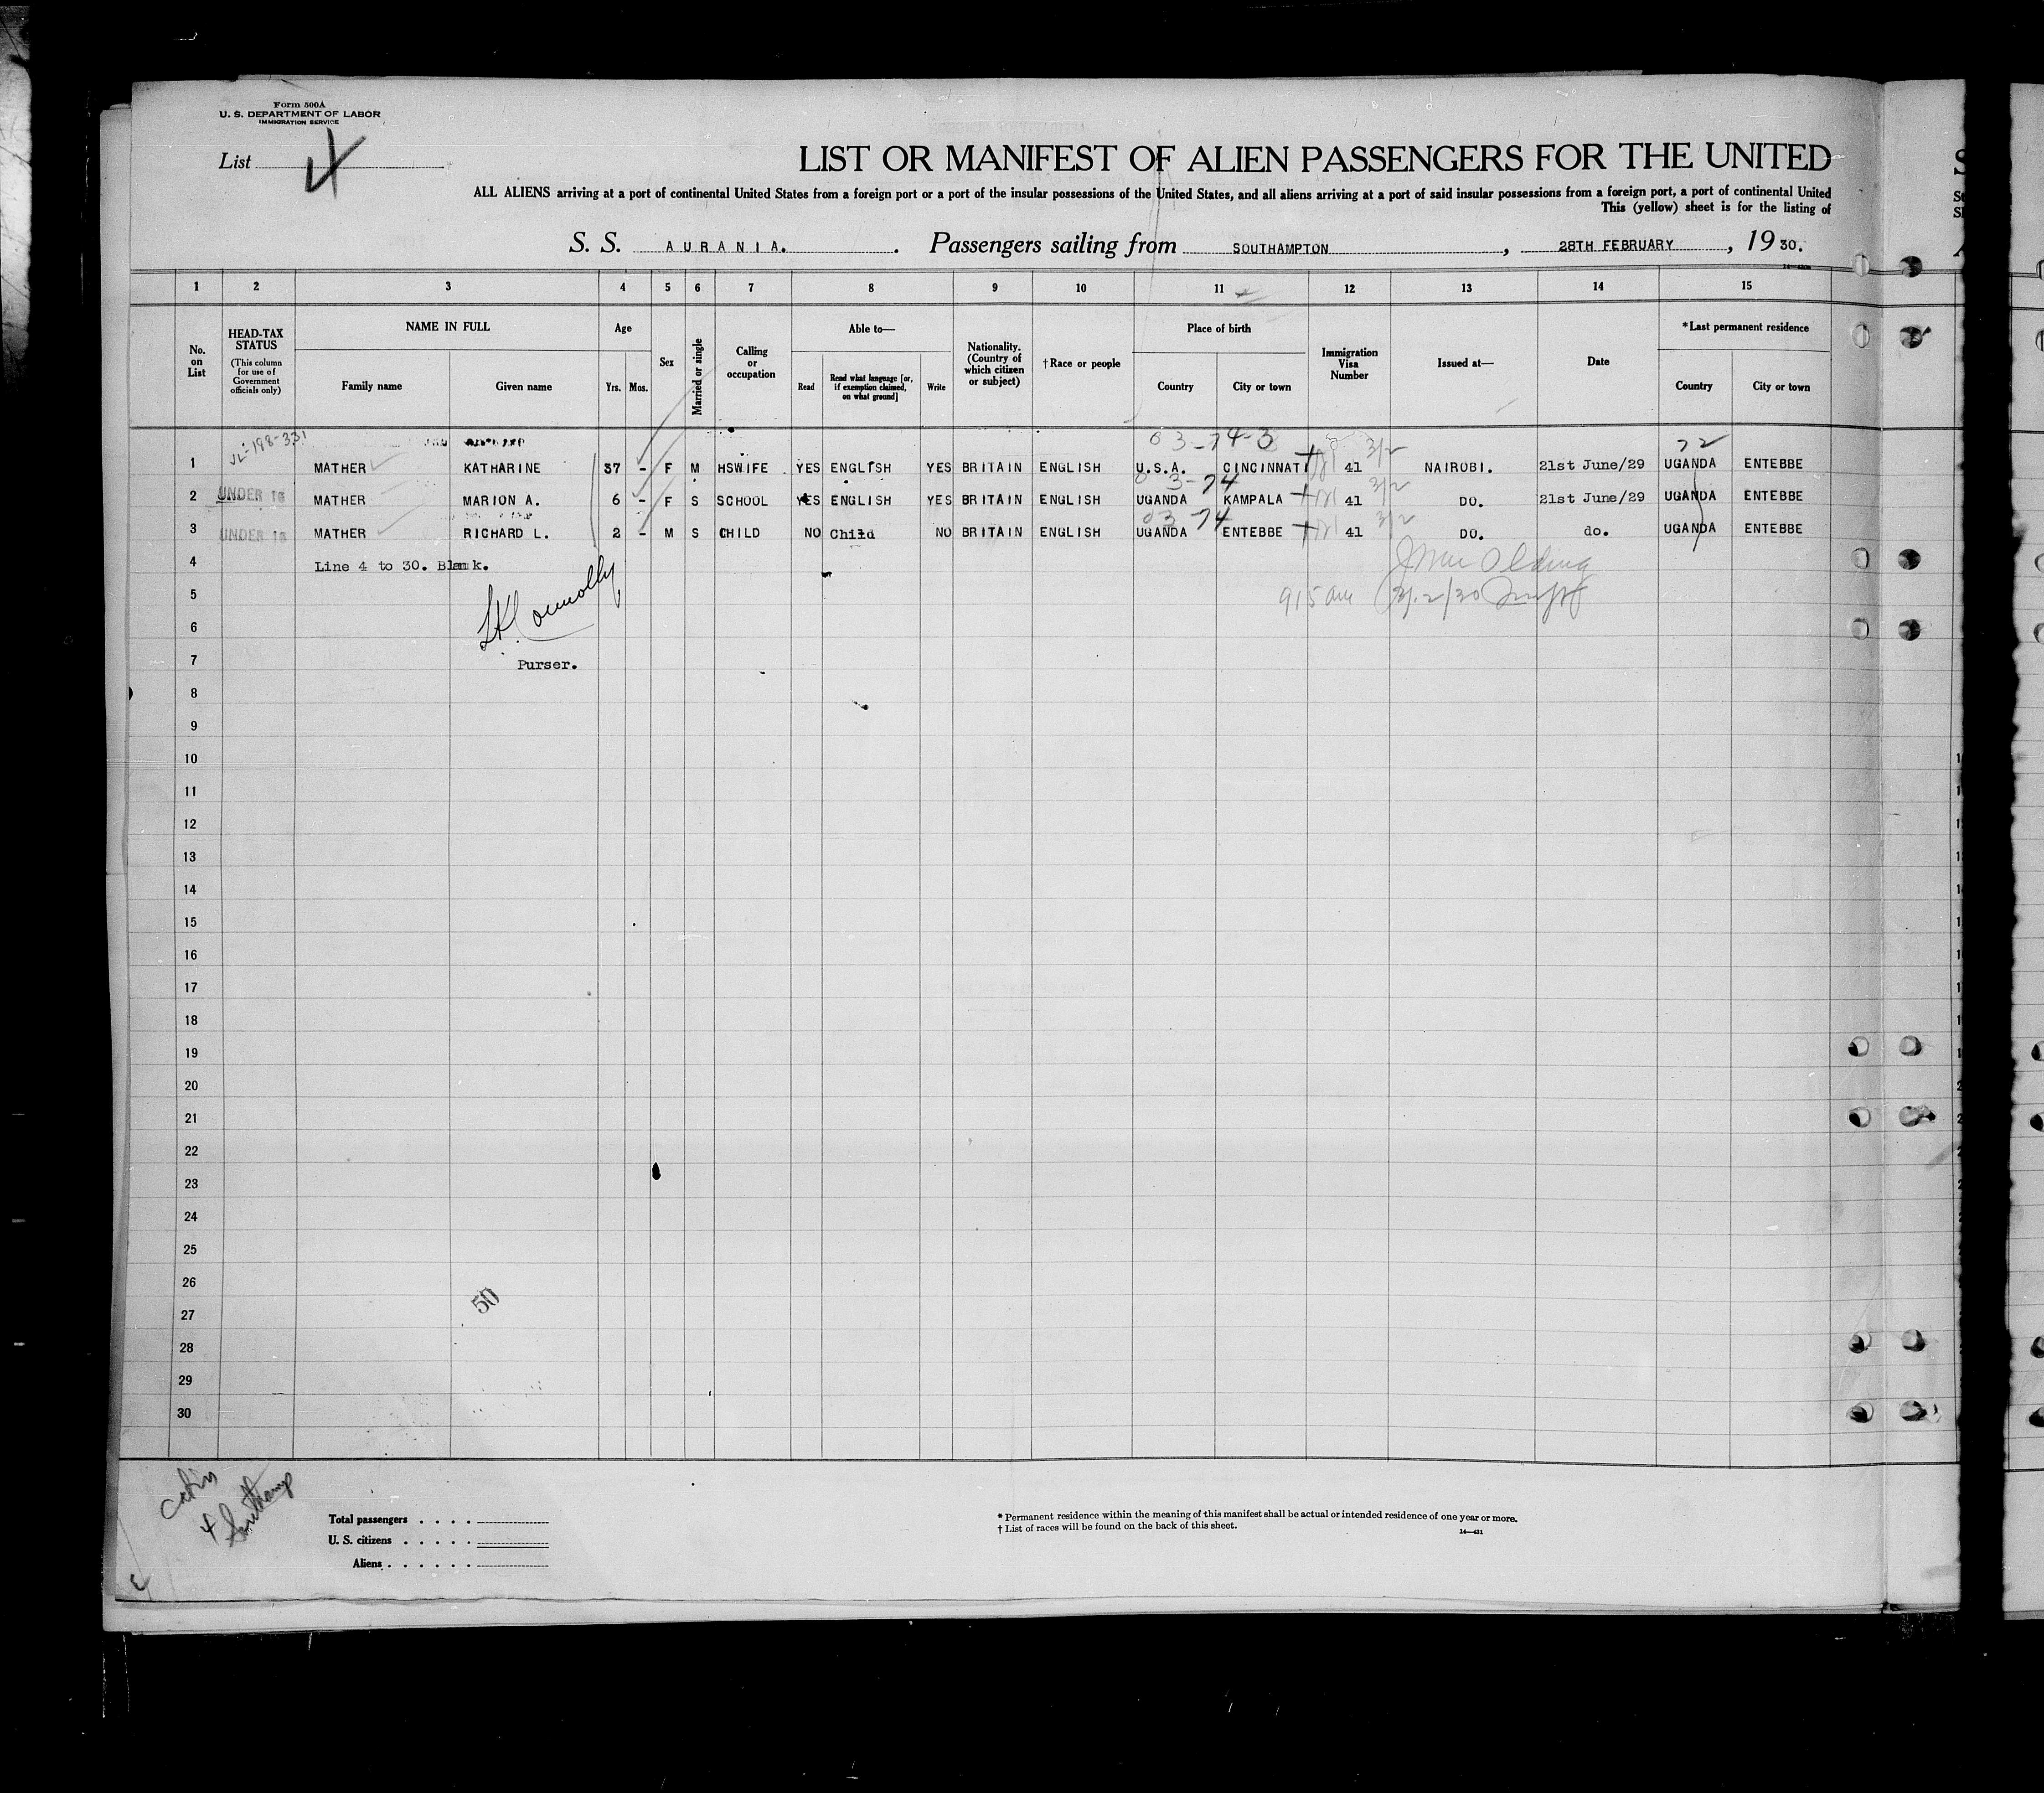 Form 500A
U. S. DEPARTMENT OF LABOR
IMMIGRATION SERVICE
List 4
LIST OR MANIFEST OF ALIEN PASSENGERS FOR THE UNITED
ALL ALIENS arriving at a port of continental United States from a foreign port or a port of the insular possessions of the United States, and all aliens arriving at a port of said insular possessions from a foreign port, a port of continental United
This (yellow) sheet is for the listing of
S. S. AURANIA. . Passengers sailing from SOUTHAMPTON , 28TH FEBRUARY , 19 30.
1 2 3 4 5 6 7 8 9 10 11 12 13 14 15
No. on List
HEAD-TAX STATUS (This column for use of Government officials only)
NAME IN FULL
Family name Given name
Age
Yrs. Mos.
Sex
Married or single
Calling or occupation
Able to—
Read Read what language [or, if exemption claimed, on what ground] Write
Nationality. (Country of which citizen or subject)
†Race or people
Place of birth
Country City or town
Immigration Visa Number
Issued at—
Date
*Last permanent residence
Country City or town
03-74-3 72
1 MATHER KATHARINE 37 - F M HSWIFE YES ENGLISH YES BRITAIN ENGLISH U.S.A. CINCINNATI 41 3/2 NAIROBI. 21st June/29 UGANDA ENTEBBE
03-74
2 UNDER 16 MATHER MARION A. 6 - F S SCHOOL YES ENGLISH YES BRITAIN ENGLISH UGANDA KAMPALA 41 3/2 DO. 21st June/29 UGANDA ENTEBBE
03 74
3 UNDER 16 MATHER RICHARD L. 2 - M S CHILD NO Child NO BRITAIN ENGLISH UGANDA ENTEBBE 41 3/2 DO. do. UGANDA ENTEBBE
4 Line 4 to 30. Blank.
5 Connolly 915 am
6
7 Purser.
8
9
10
11
12
13
14
15
16
17
18
19
20
21
22
23
24
25
26
27 50
28
29
30
Cabin
4 Southamp
Total passengers . . . .
U. S. citizens . . . . .
Aliens . . . . . .
* Permanent residence within the meaning of this manifest shall be actual or intended residence of one year or more.
† List of races will be found on the back of this sheet.
14—431